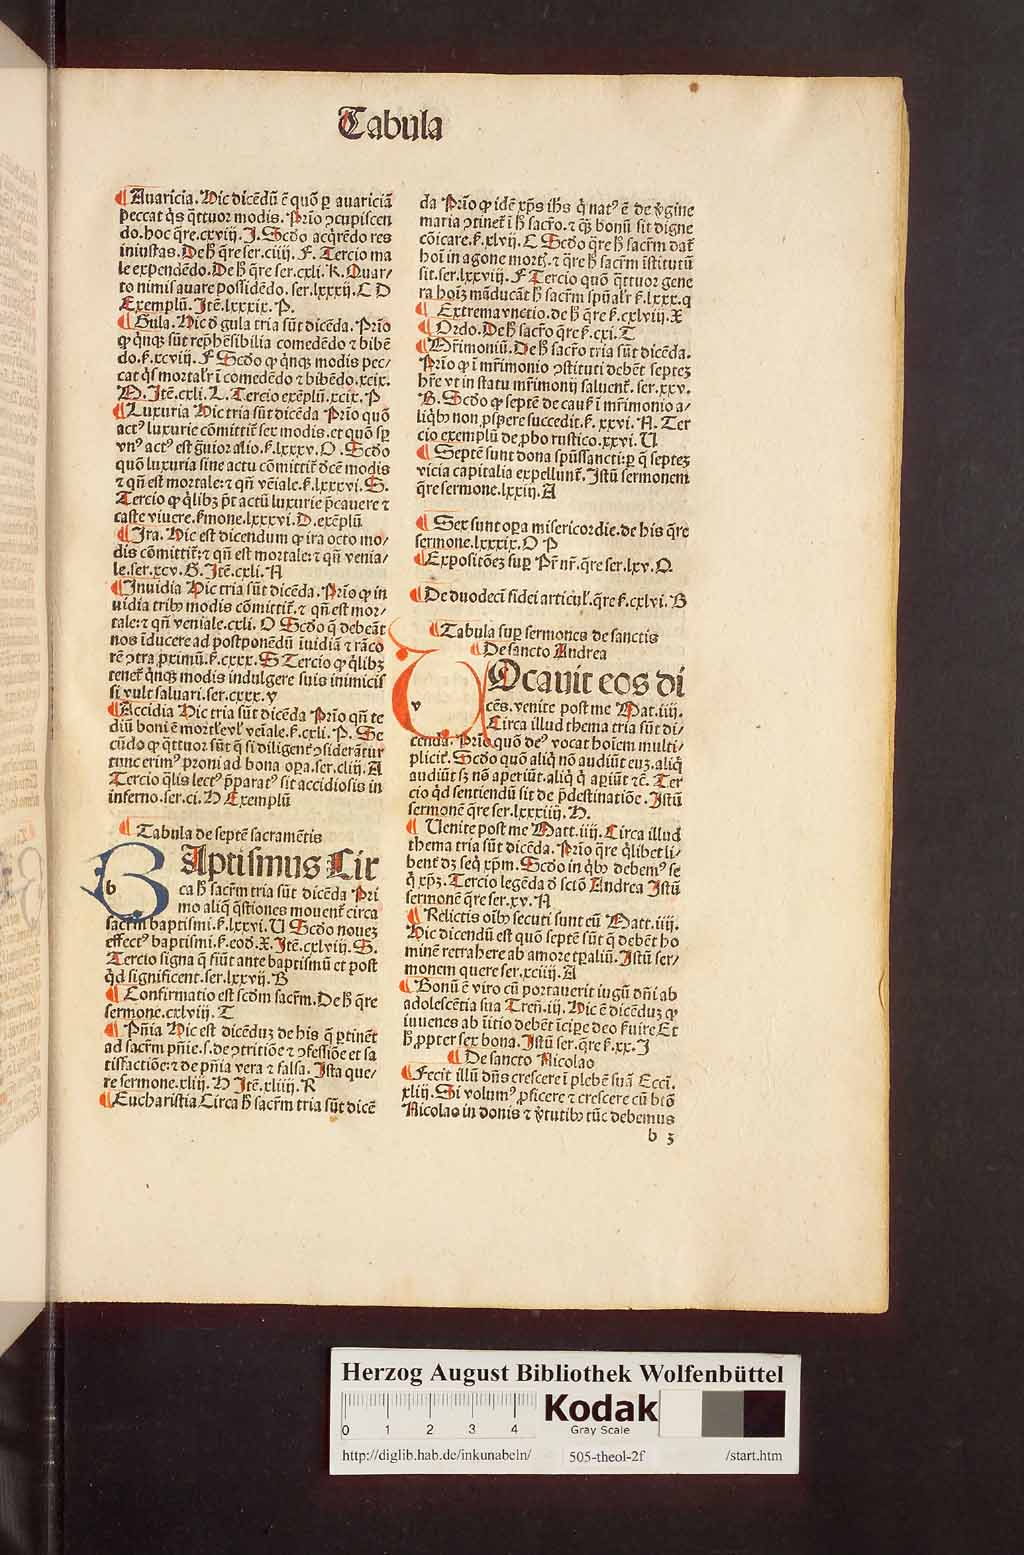 Tabula
¶ Auaricia. Hic dicēdū ē quō ꝑ auariciā
peccat q̇s q̄ttuor modis. Prīo ꝯcupiscen
do. hoc q̄re. cxviij. J. Scdo acq̄rēdo res
iniustas. De h̄ q̄re ser. ciiij. F. Tercio ma
le expendēdo. De h̄ q̄re ser. cxli. K. Quar/
to nimis auare possidēdo. ser. lxxxij. C D
Exemplū. Itē. lxxxix. P.
¶ Gula. Hic d̓ gula tria sūt dicēda. Prīo
ꝙ q̇nqꝫ sūt rep̄hēsibilia comedēdo ⁊ bibē
do. ẜ. xcviij. F Scdo ꝙ q̇nqꝫ modis pec/
cat q̇s mortalr̄ ī comedēdo ⁊ bibēdo. xcix.
M. Itē. cxli. L. Tercio exēplū. xcix. P
¶ Luxuria Hic tria sūt dicēda Prīo quō
actꝰ luxurie cōmittit̄ sex modis. et quō sꝑ
vnꝰ actꝰ est g̈uior alio. ẜ. lxxxv. O. Scdo
quō luxuria sine actu cōmittit̄ d̓cē modis
⁊ qn̄ est mortale: ⁊ qn̄ vēiale. ẜ. lxxxvi. S.
Tercio ꝙ q̇libꝫ pōt actū luxurie p̄cauere ⁊
caste viuere. ẜmone. lxxxvi. D. exēplū
¶ Ira. Hic est dicendum ꝙ ira octo mo/
dis cōmittit̄: ⁊ qn̄ est mortale: ⁊ qn̄ venia/
le. ser. xcv. G. Itē. cxli. A
¶ Inuidia Hic tria sūt dicēda. Prīo ꝙ in
uidia tribꝰ modis cōmittit̄. ⁊ qn̄ est mor/
tale: ⁊ qn̄ veniale. cxli. O Scdo q̄ debeāt
nos īducere ad postponēdū īuidiā ⁊ rāco
rē ꝯtra ꝓximū. ẜ. cxxx. S Tercio ꝙ q̇libꝫ
tenet̄ q̇nqꝫ modis indulgere suis inimicis
si vult saluari. ser. cxxx. v
¶ Accidia Hic tria sūt dicēda Prīo qn̄ te
diū boni ē mortle vl̓ vēiale. ẜ. cxli. P. Se
cūdo ꝙ q̄ttuor sūt q̄ si diligent̄ ꝯsiderātur
tunc erimꝰ proni ad bona oꝑa. ser. cliij. A
Tercio q̄lis lectꝰ p̄paratꝰ sit accidiosis in
inferno. ser. ci. H Exemplū
¶ Tabula de septē sacramētis
b BAptismus Cir
ca h̄ sacrm̄ tria sūt dicēda Pri
mo aliq̄ q̄stiones mouent̄ circa
sacrm̄ baptismi. ẜ. lxxvi. U Scdo nouez
effectꝰ baptismi. ẜ. eod. X. Itē. cxlviij. S.
Tercio signa q̄ fiūt ante baptismū et post
q̇d significent. ser. lxxvij. B
¶ Confirmatio est scd̄m sacrm̄. De h̄ q̄re
sermone. cxlviij. T
¶ Pn̄ia Hic est dicēduꝫ de his q̄ ꝑtinēt
ad sacrm̄ pn̄ie. s. de ꝯtritiōe ⁊ ꝯfessiōe et sa
tisfactiōe: ⁊ de pn̄ia vera ⁊ falsa. Ista que/
re sermone. xliij. H Itē. xliiij. R
¶ Eucharistia Circa h̄ sacrm̄ tria sūt dicē
da Prīo ꝙ idē xp̄s ih̄s q̇ natꝰ ē de v̓gine
maria ꝯtinet̄ ī h̄ sacr̄o. ⁊ qꝫ bonū sit digne
cōicare. ẜ. xlvij. C Scdo q̄re h̄ sacrm̄ dat̄
hoī in agone mort̓. ⁊ q̄re h̄ sacrm̄ īstitutū
sit. ser. lxxviij. F Tercio quō q̄ttuor gene
ra hoīꝫ māducāt h̄ sacrm̄ spūalr̄ ẜ. lxxx. q
¶ Extremavnctio. de h̄ q̄re ẜ. cxlviij. X
¶ Ordo. De h̄ sacr̄o q̄re ẜ. cxi. T
¶ Mr̄imoniū. De h̄ sacr̄o tria sūt dicēda.
Prīo ꝙ ī mr̄imonio ꝯstituti debēt septeꝫ
hr̄e vt in statu mr̄imonij saluent̄. ser. xxv.
B. Scdo ꝙ septē de causꝭ ī mr̄imonio a/
liqn̄ non ꝓspere succedit. ẜ. xxvi. A. Ter
cio exemplū de ꝓbo rustico. xxvi. U
¶ Septē sunt dona spūssancti: ꝑ q̄ septeꝫ
vicia capitalia expellunt̄. Istū sermonem
q̄re sermone. lxxiij. A
¶ Sex sunt oꝑa misericordie. de his q̄re
sermone. lxxxix. O P
¶ Expositōeꝫ suꝑ Pr̄ nr̄. q̄re ser. lxv. Q.
¶ De duodecī fidei articul̓. q̄re ẜ. cxlvi. B
¶ Tabula suꝑ sermones de sanctis
¶ De sancto Andrea
v VOcauit eos di
cēs. venite post me Mat. iiij.
Circa illud thema tria sūt di/
cenda. Prīo quō deꝰ vocat hoīem multi/
plicit̄. Scdo quō aliq̇ nō audiūt euꝫ. aliq̇
audiūt sꝫ nō aperiūt. aliq̇ q̇ aꝑiūt ⁊c̄. Ter
cio q̇d sentiendū sit de p̄destinatiōe. Istū
sermonē q̄re ser. lxxxiiij. H.
¶ Uenite post me Matt. iiij. Circa illud
thema tria sūt dicēda. Prīo q̄re q̇libet li/
bent̄ dꝫ seq̇ xp̄m. Scdo in q̇bꝰ debemꝰ se
q̇ xp̄ꝫ. Tercio legēda d̓ sctō Andrea Istū
sermonē q̄re ser. xv. A
¶ Relictis oībꝰ secuti sunt eū Matt. iiij.
Hic dicendū est quō septē sūt q̄ debēt ho
minē retrahere ab amore tꝑaliū. Istū ser/
monem quere ser. xciiij. A
¶ Bonū ē viro cū portauerit iugū dn̄i ab
adolescētia sua Tren̄. iij. Hic ē dicēduꝫ ꝙ
iuuenes ab īitio debēt īciꝑe deo ẜuire Et
h̄ ꝓpter sex bona. Istū ser. q̄re ẜ. xx. J
¶ De sancto Nicolao
¶ Fecit illū dn̄s crescere ī plebē suā Ecci̓.
xliij. Si volumꝰ ꝓficere ⁊ crescere cū btō
Nicolao in donis ⁊ v̓tutibꝰ tūc debemus
b 3
Herzog August Bibliothek Wolfenbüttel
0 1 2 3 4
Kodak
Gray Scale
http://diglib.hab.de/inkunabeln/ 505-theol-2f /start.htm